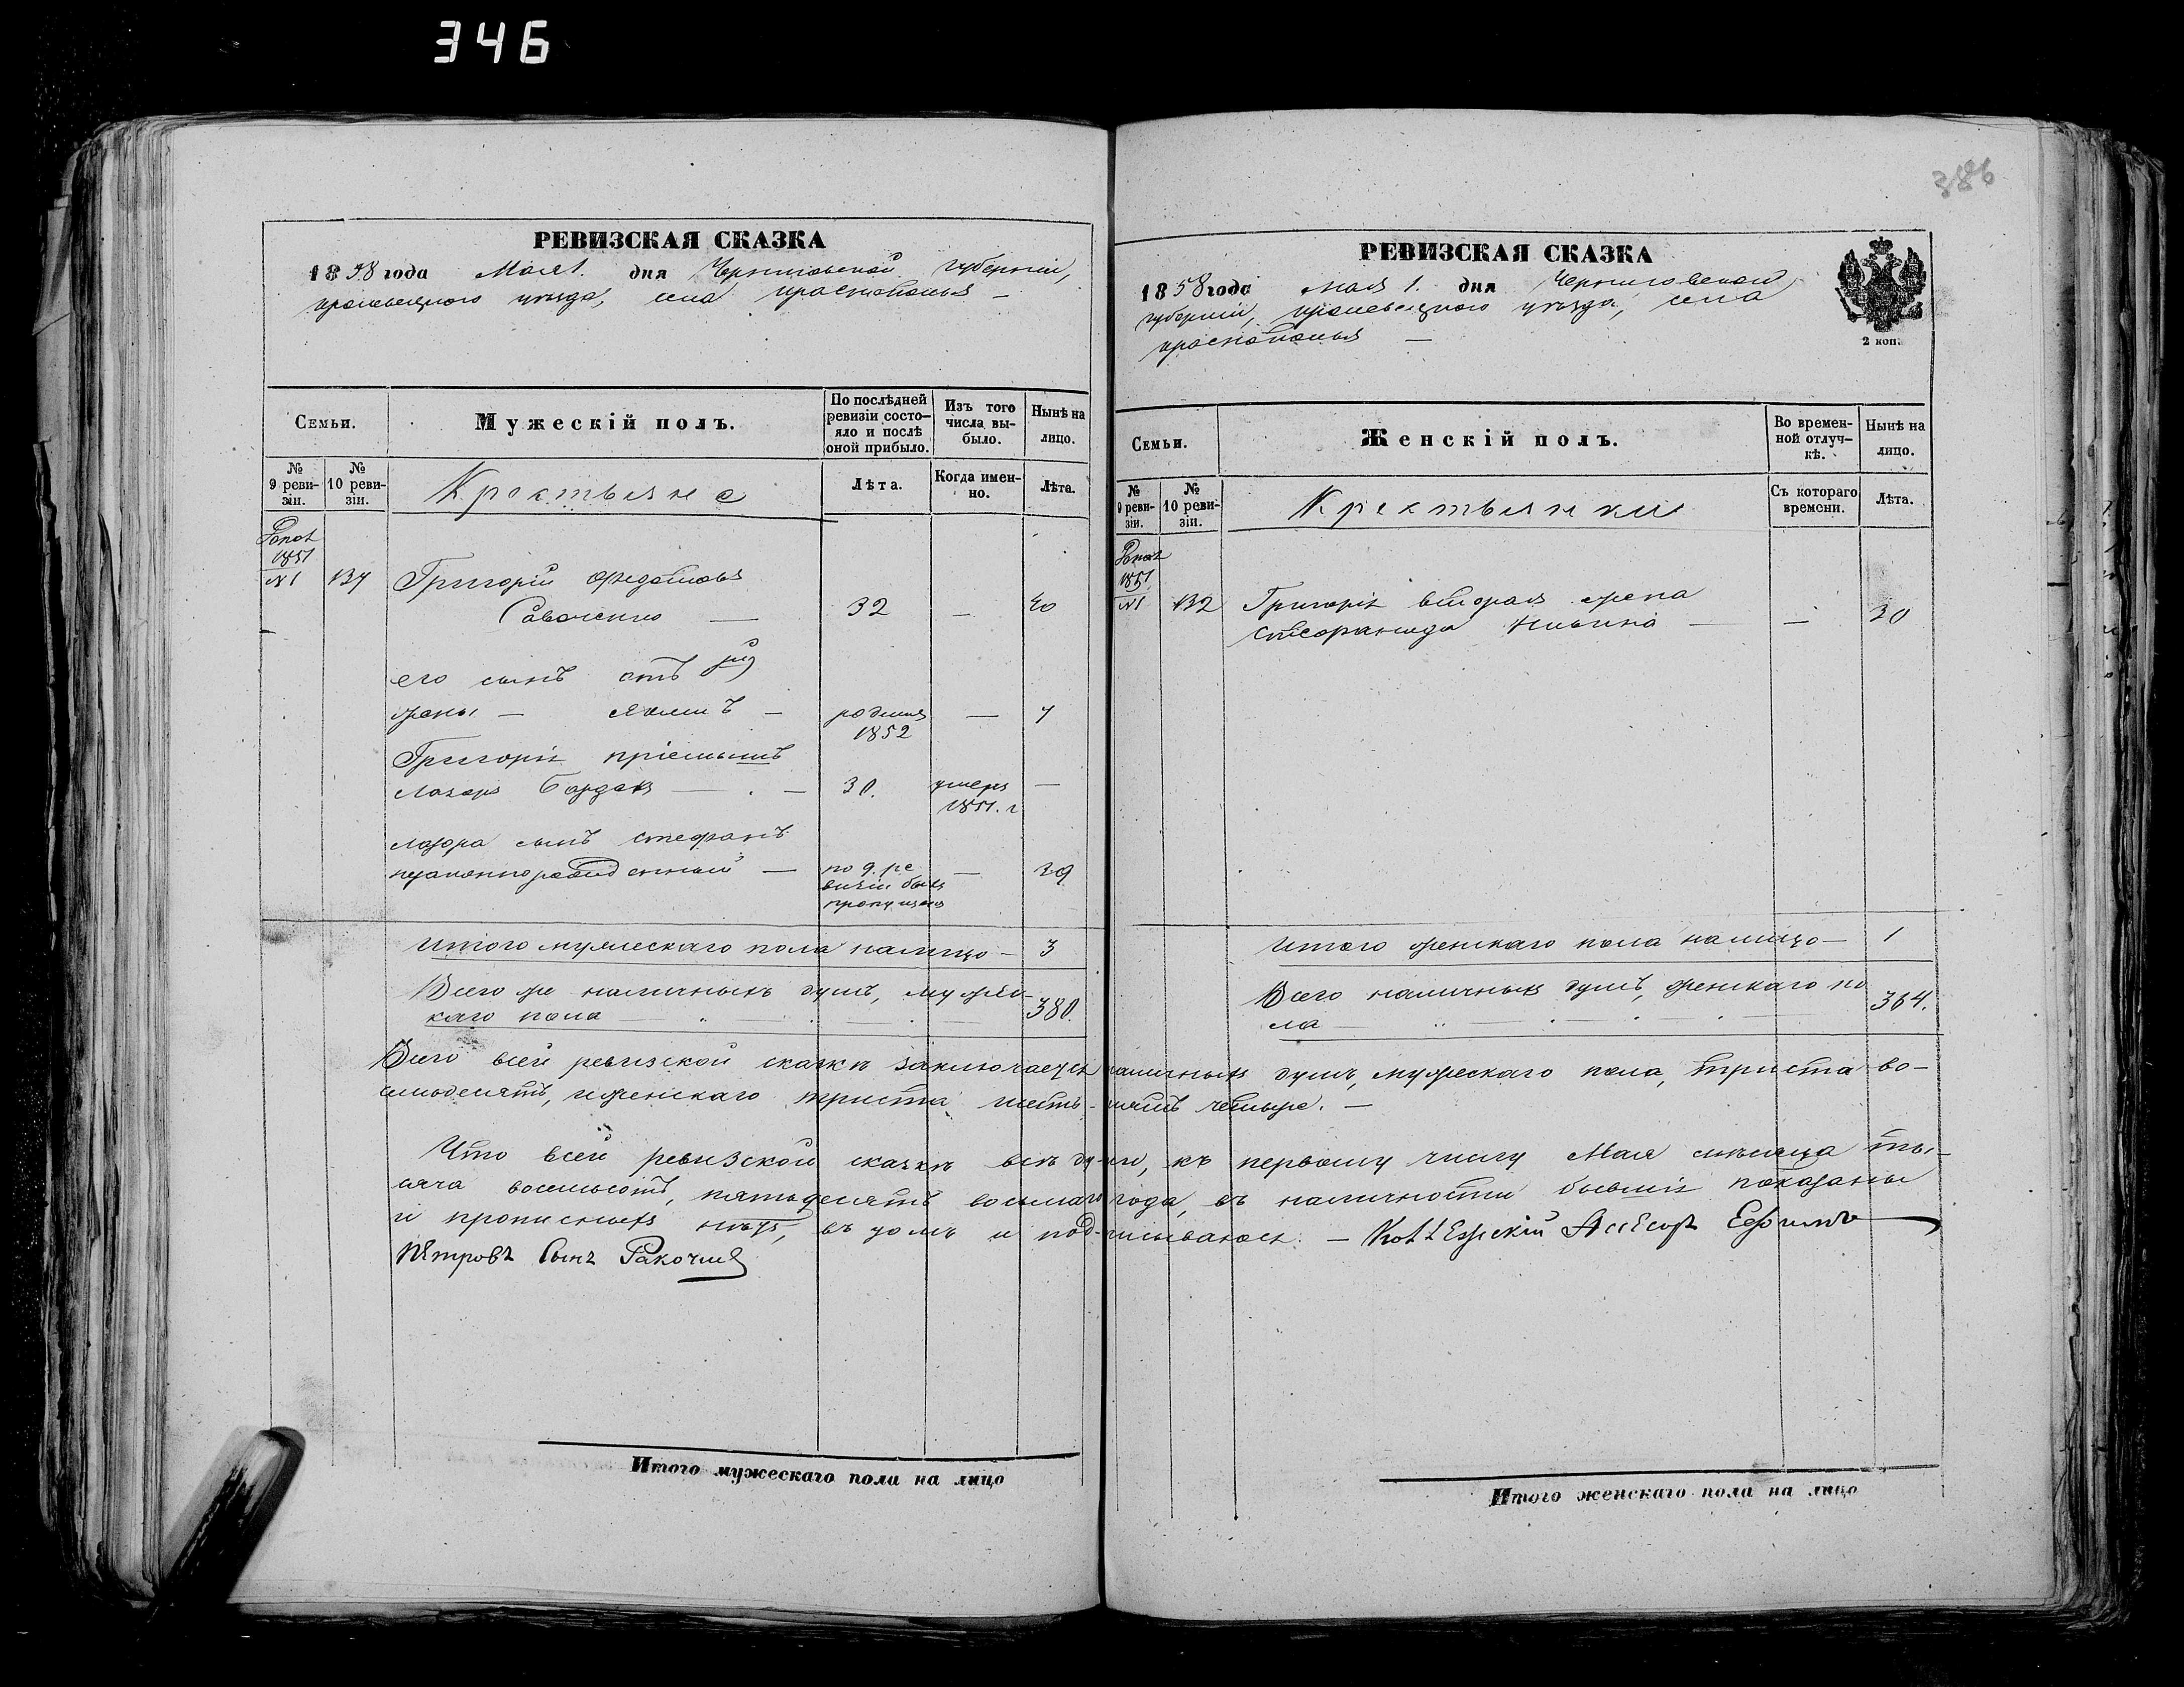 346
386
РЕВИЗСКАЯ СКАЗКА
1858 года Мая 1. дня Черниговской губерніи,
кролевецкого уезда, села краснополья —
Семьи.
Мужескій полъ.
По послѣдней ревизіи состо-
яло и послѣ
оной прибыло.
Изъ того
числа вы-
было.
Нынѣ на
лицо.
№
9 реви-
зіи.
№
10 реви-
зіи.
Крестьяне
Лѣта.
Когда имен-
но.
Лѣта.
1851
№1 134 Григорій Федотовъ
Савченко — 32 — 40
его сынъ отъ
жены — — родился — 7
1852
Григорія пріемышъ
Лазарь — . — 30. умеръ —
1851. г
Лазаря сынъ Стефанъ
незаконнорожденный — по 9. ре — 29
визіи былъ
пропущенъ
Итого мужескаго пола налицо — 3
Всего же наличныхъ душъ, мужес-
каго пола — 380.
РЕВИЗСКАЯ СКАЗКА
1858 года мая 1. дня Черниговской
губерніи, кролевецкого уезда, села
краснополья —
2 коп.
Семьи.
Женскій полъ.
Во времен-
ной отлуч-
кѣ.
Нынѣ на
лицо.
№
9 реви-
зіи.
№
10 реви-
зіи.
Крестьянки
Съ котораго
времени.
Лѣта.
1851
№1 132 Григорія вторая жена
— — 30
Итого женскаго пола налицо — 1
Всего наличныхъ душъ, женскаго по
ла — 364.
Всего всей ревизской сказкѣ заключается наличныхъ душъ, мужескаго пола, триста во-
семьдесятъ, и женскаго триста шестьдесятъ четыре. —
Что всей ревизской сказкѣ всѣ души, къ первому числу Мая мѣсяца ты-
сяча восемьсотъ, пятьдесятъ восьмаго года, въ наличности бывшіе показаны
и прописныхъ нѣтъ, въ томъ и подписываюсь. — Коллежскій Ассесоръ Ефимъ
Петровъ Сынъ
Итого мужескаго пола на лицо
Итого женскаго пола на лицо